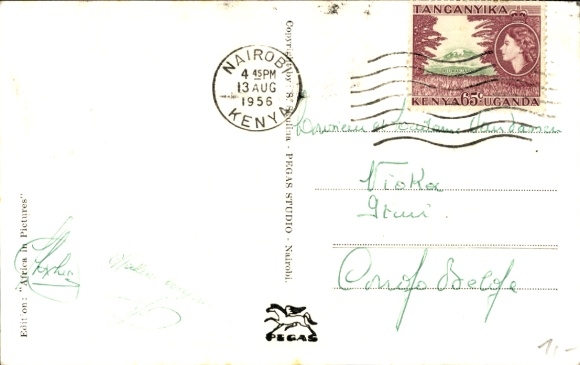 TANGANYIKA
KENYA 65c UGANDA
NAIROBI
4 45PM
13 AUG
1956
KENYA
Copyright by
PEGAS STUDIO - Nairobi.
Monsieur et Madame
Nioka
Ituri.
Congo Belge
Edition: "Africa in Pictures"
PEGAS
1,-